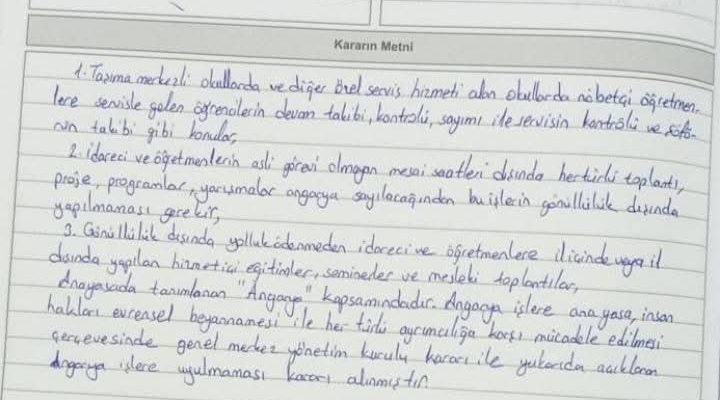 Kararın Metni
1. Taşıma merkezli okullarda ve diğer özel servis hizmeti alan okullarda nöbetçi öğretmen-
lere servisle gelen öğrencilerin devam takibi, kontrolü, sayımı ile servisin kontrolü ve şöfö-
rün takibi gibi konular,
2. İdareci ve öğetmenlerin asli görevi olmayan mesai saatleri dışında her türlü toplantı,
proje, programlar, yarışmalar angarya sayılacağından bu işlerin gönüllülük dışında
yapılmaması gerekir,
3. Gönüllülük dışında yolluk ödenmeden idareci ve öğretmenlere il içinde veya il
dışında yapılan hizmetiçi eğitimler, seminerler ve mesleki toplantılar,
Anayasada tanımlanan "Angarya" kapsamındadır. Angarya işlere anayasa, insan
hakları evrensel beyannamesi ile her türlü ayrımcılığa karşı mücadele edilmesi
çerçevesinde genel merkez yönetim kurulu kararı ile yukarıda açıklanan
Angarya işlere uyulmaması kararı alınmıştır.